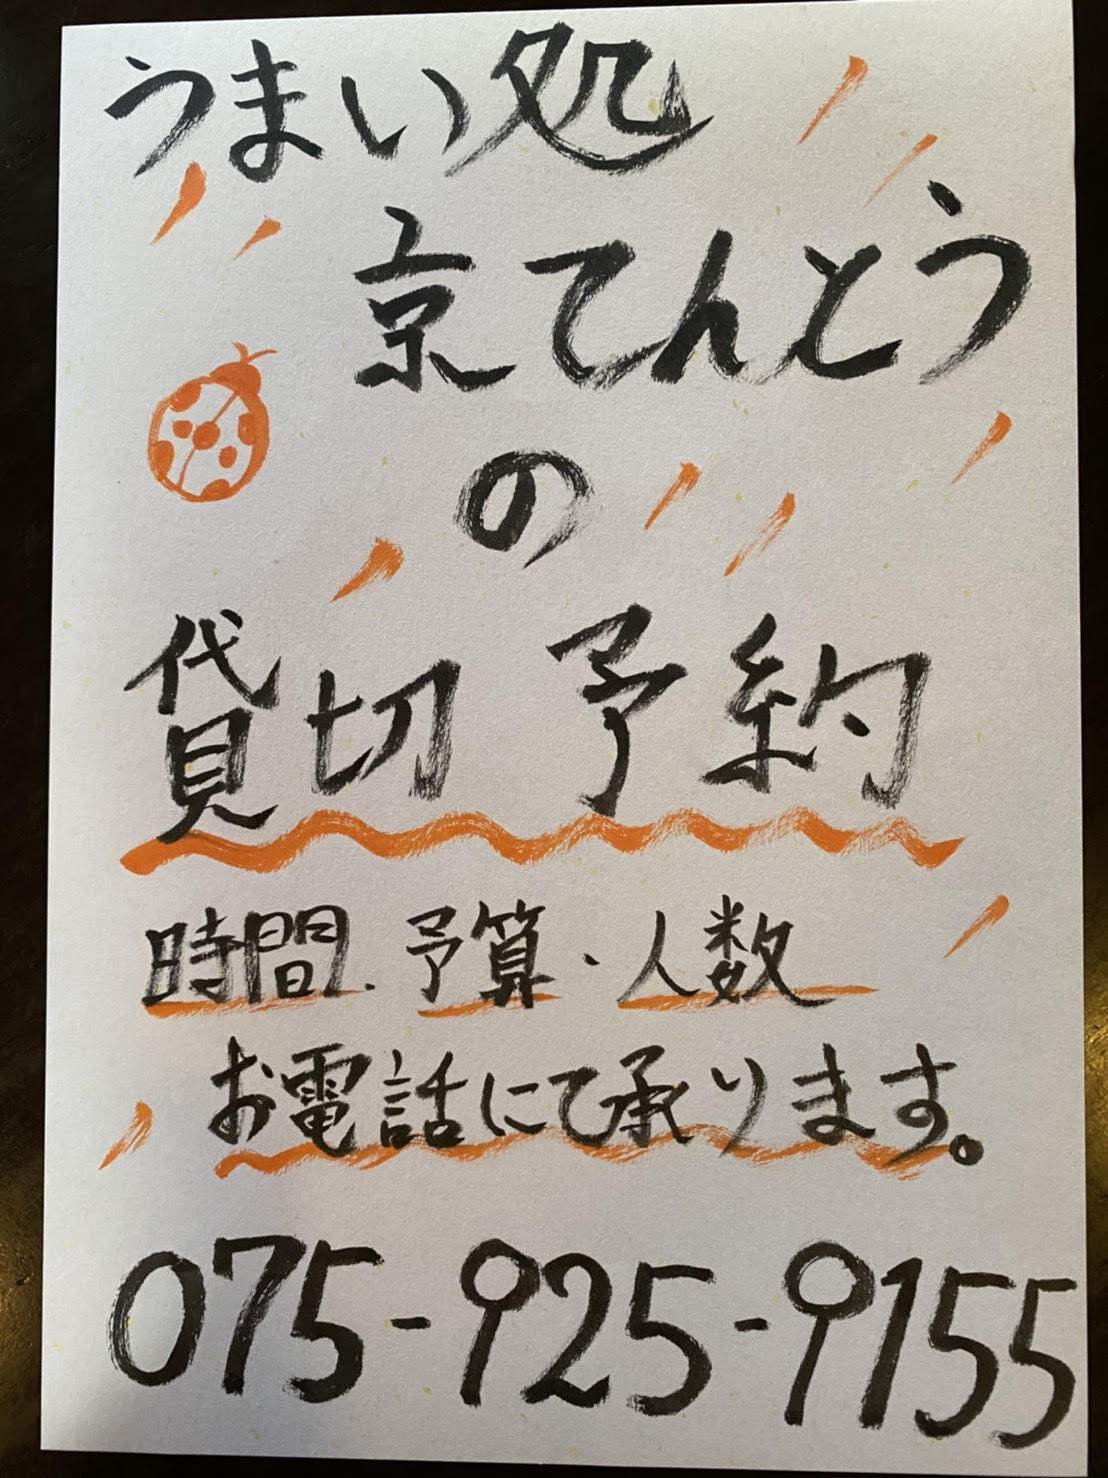 うまい処
京てんとう
の
貸切 予約
時間.予算・人数
お電話にて承ります。
075-925-9155